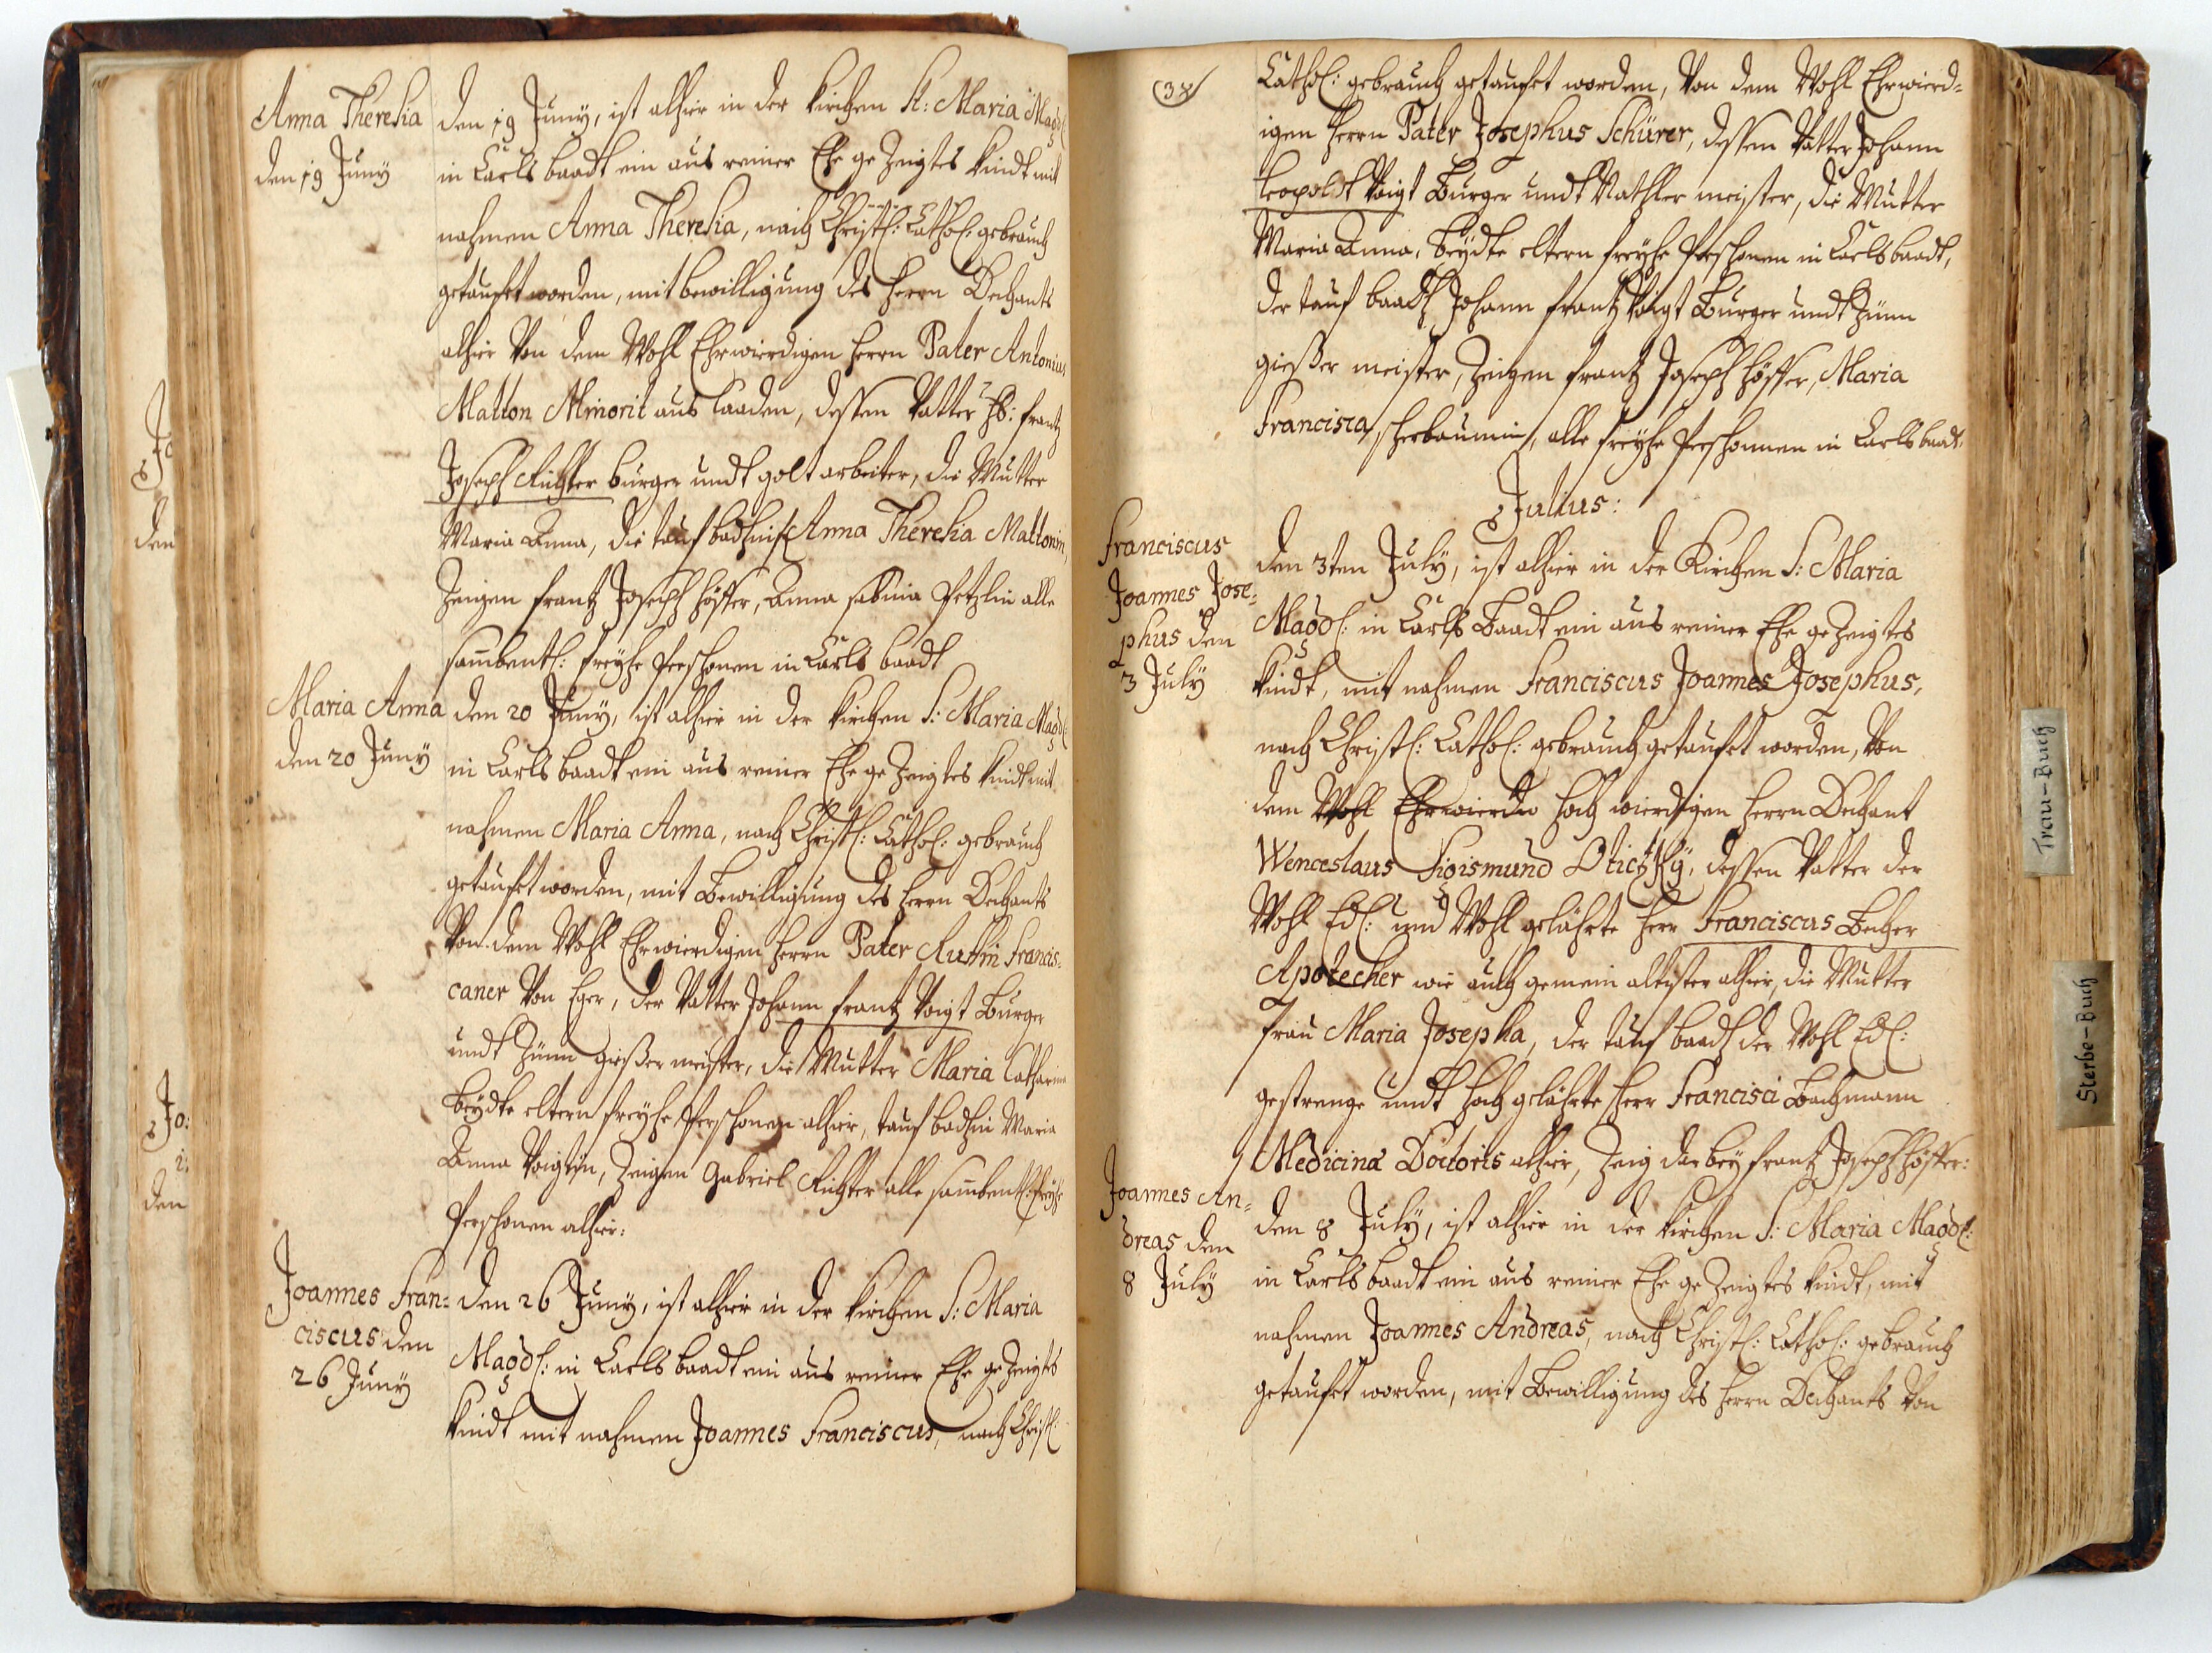 Anna Theresia
den 19 Juny
den 19 Juny, ist alhier in der Kirchen St: Maria Magdl:
in Carls baadt ein aus reiner Ehe gezeigtes Kindt mit
nahmen Anna Theresia, nach Christl: Cathol: gebrauch
getauft worden, mit bewilligung des Herrn Dechants
alhier Von dem Wohl Ehrwierdigen Herrn Pater Antonius
Matton Minorit aus Caaden, dessen Vatter H: Frantz
Joseph Richter burger undt golt arbeiter, die Mutter
Maria Anna, die tauf badhin ist Anna Theresia Mattonin,
Zeugen Frantz Joseph Höffer, Anna Sabina Petzlin alle
sambentl: freyhe Pershonen in Carls baadt
Maria Anna
den 20 Juny
den 20 Juny, ist alhier in der Kirchen S: Maria Magdl:
in Carls baadt ein aus reiner Ehe gezeigtes Kindt mit
nahmen Maria Anna, nach Christl: Cathol: gebrauch
getauft worden, mit Bewilligung des Herrn Dechants
Von dem Wohl Ehrwierdigen Herrn Pater Francis=
caner Von Eger, der Vatter Johann Frantz Voigt Burger
undt Zünn gießer meister, die Mutter Maria Catharina
beydte eltern freyhe Pershonen alhier, tauf badhin Maria
Anna Voigtin, Zeugen Gabriel Richter alle sambentl: freyhe
Pershonen alhier:
Joannes Fran=
ciscus den
26 Juny
den 26 Juny, ist alhier in der Kirchen S: Maria
Magdl: in Carls baadt ein aus reiner Ehe gezeigtes
Kindt mit nahmen Joannes Franciscus, nach Christl:
Jo
den
Jo:
den
Cathol: gebrauch getauft worden, Von dem Wohl Ehrwierd=
igen Herrn Pater Josephus Schürer, dessen Vatter Johann
Leopoldt Voigt Burger undt Nathler meister, die Mutter
Maria Anna, beydte eltern freyhe Pershonen in Carls baadt,
der tauf baadh Johann Frantz Voigt Burger undt Zünn
gießer meister, Zeugen Frantz Joseph Höffer, Maria
Francisca Scherbaumin, alle freyhe Pershonnen in Carls baadt.
Julius:
Franciscus
Joannes Jose=
phus den
3 July
den 3ten July, ist alhier in der Kirchen S: Maria
Magdl: in Carls Baadt ein aus reiner Ehe gezeigtes
Kindt, mit nahmen Franciscus Joannes Josephus,
nach Christl: Cathol: gebrauch getauft worden, Von
dem Wohl Ehrwierdi hoch wierdigen Herrn Dechant
Wenceslaus Sigismund Oticzky, dessen Vatter der
Wohl Edl: und Wohl gelährte Herr Franciscus Becher
Apotecher wie auch gemein altister alhier, die Mutter
Frau Maria Josepha, der tauf baadh der Wohl Edl:
gestrenge undt hoch gelährte Herr Francisci Bachmann
Medicinæ Doctoris alhier, Zeug darbey Frantz Joseph Höffer:
Joannes An=
dreas den
8 July
den 8 July, ist alhier in der Kirchen S: Maria Magdl:
in Carls baadt ein aus reiner Ehe gezeigtes Kindt, mit
nahmen Joannes Andreas, nach Christl: Cathol: gebrauch
getauft worden, mit Bewilligung des Herrn Dechants Von
Trau-Buch
Sterbe-Buch